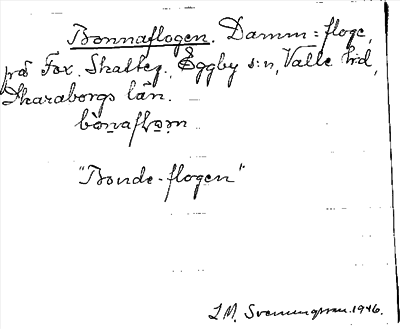 Bonnaflogen. Damm=floge,
på Fox. Skatteg., Eggby s:n, Valle hd,
Skaraborgs län.
bònaflo̱m
"Bonde-flogen"
L.M. Svenungsson. 1946.